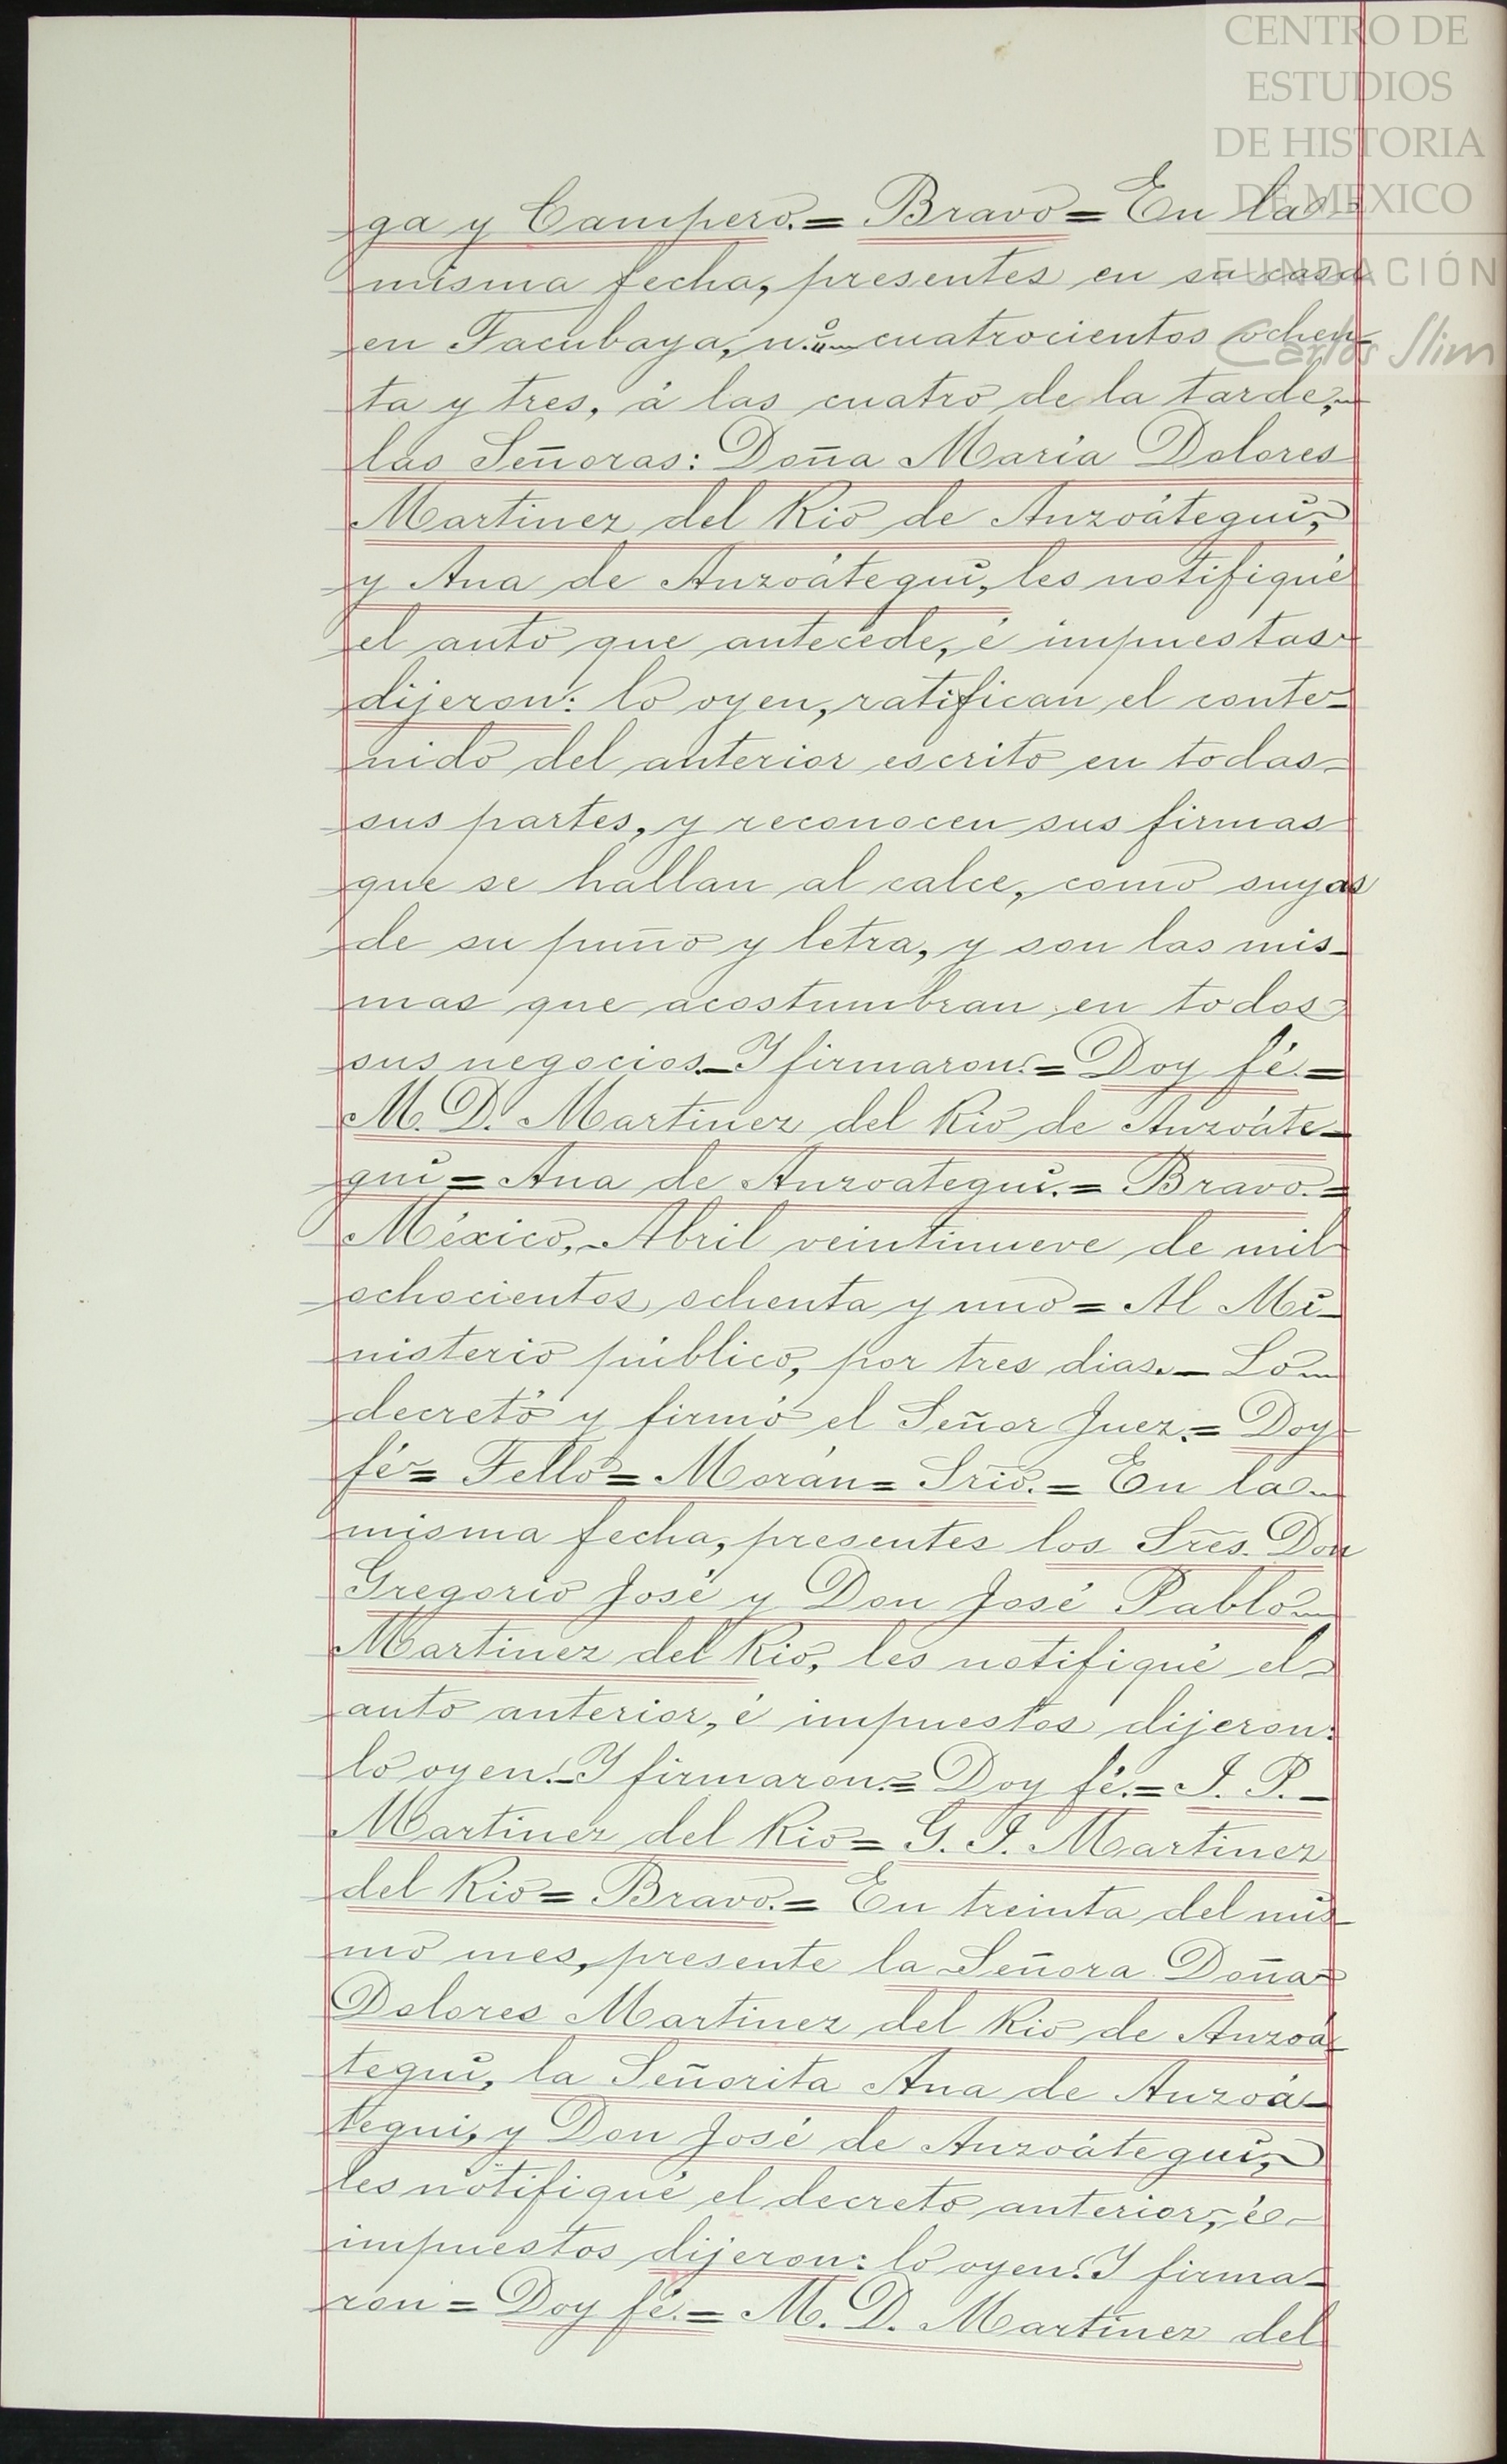 CENTRO DE
ESTUDIOS
DE HISTORIA
DE MÉXICO
FUNDACIÓN
Carlos Slim
ga y Campero.= Bravo= En la
misma fecha, presentes en su casa
en Tacubaya, n.º cuatrocientos ochen-
ta y tres, á las cuatro de la tarde,
las Señoras: Doña María Dolores
Martinez del Rio de Anzoátegui,
y Ana de Anzoátegui, les notifiqué
el auto que antecede, é impuestas
dijeron: lo oyen, ratifican el conte-
nido del anterior escrito en todas
sus partes, y reconocen sus firmas
que se hallan al calce, como suyas
de su puño y letra, y son las mis-
mas que acostumbran en todos
sus negocios.-Y firmaron.= Doy fé.=
M. D. Martinez del Rio de Anzoáte-
gui = Ana de Anzoategui.= Bravo.=
México, Abril veintinueve de mil
ochocientos ochenta y uno = Al Mi-
nisterio público, por tres dias.- Lo
decretó y firmó el Señor Juez.= Doy
fé= Tello= Morán= Srio.= En la
misma fecha, presentes los Sres. Don
Gregorio José y Don José Pablo
Martinez del Rio, les notifiqué el
auto anterior, é impuestos dijeron:
lo oyen.-Y firmaron.= Doy fé.= J. P.-
Martinez del Rio= G. J. Martinez
del Rio= Bravo.= En treinta del mis-
mo mes, presente la Señora Doña
Dolores Martinez del Rio de Anzoá-
tegui, la Señorita Ana de Anzoá-
tegui, y Don José de Anzoátegui,
les notifiqué el decreto anterior, é
impuestos dijeron: lo oyen. Y firma-
ron = Doy fé.= M. D. Martinez del